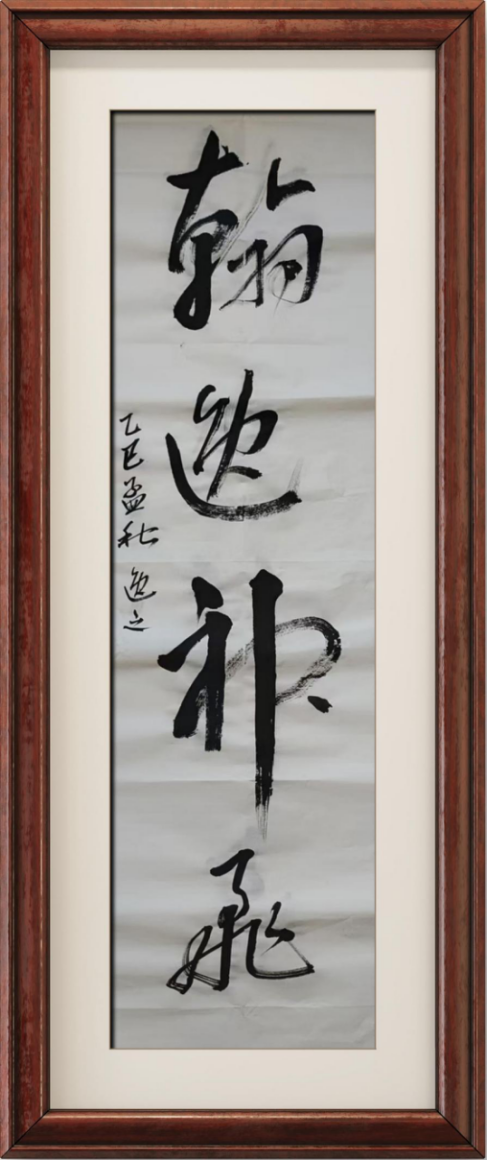 翰逸神飛
乙巳孟秋 逸之